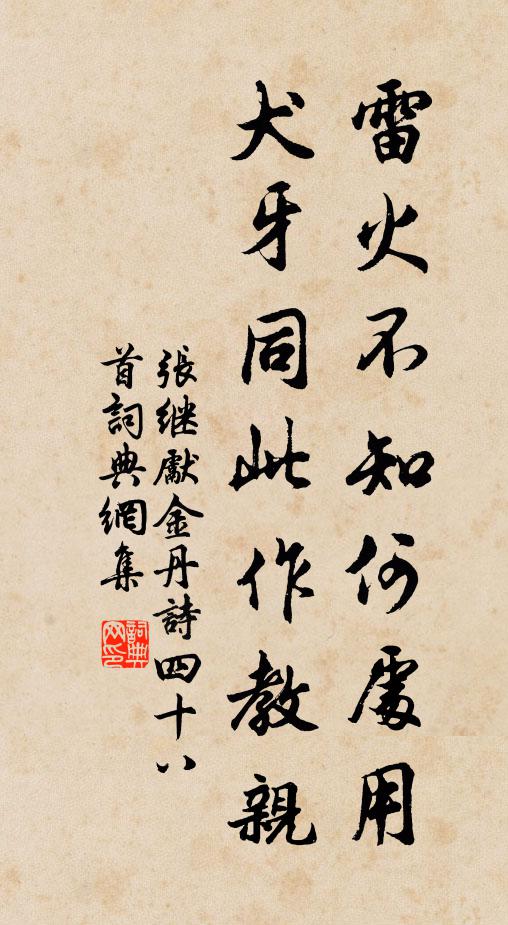 雷火不知何處用
犬牙同此作教親
張継獻金丹詩四十八
首詞典網集
詞典
网印